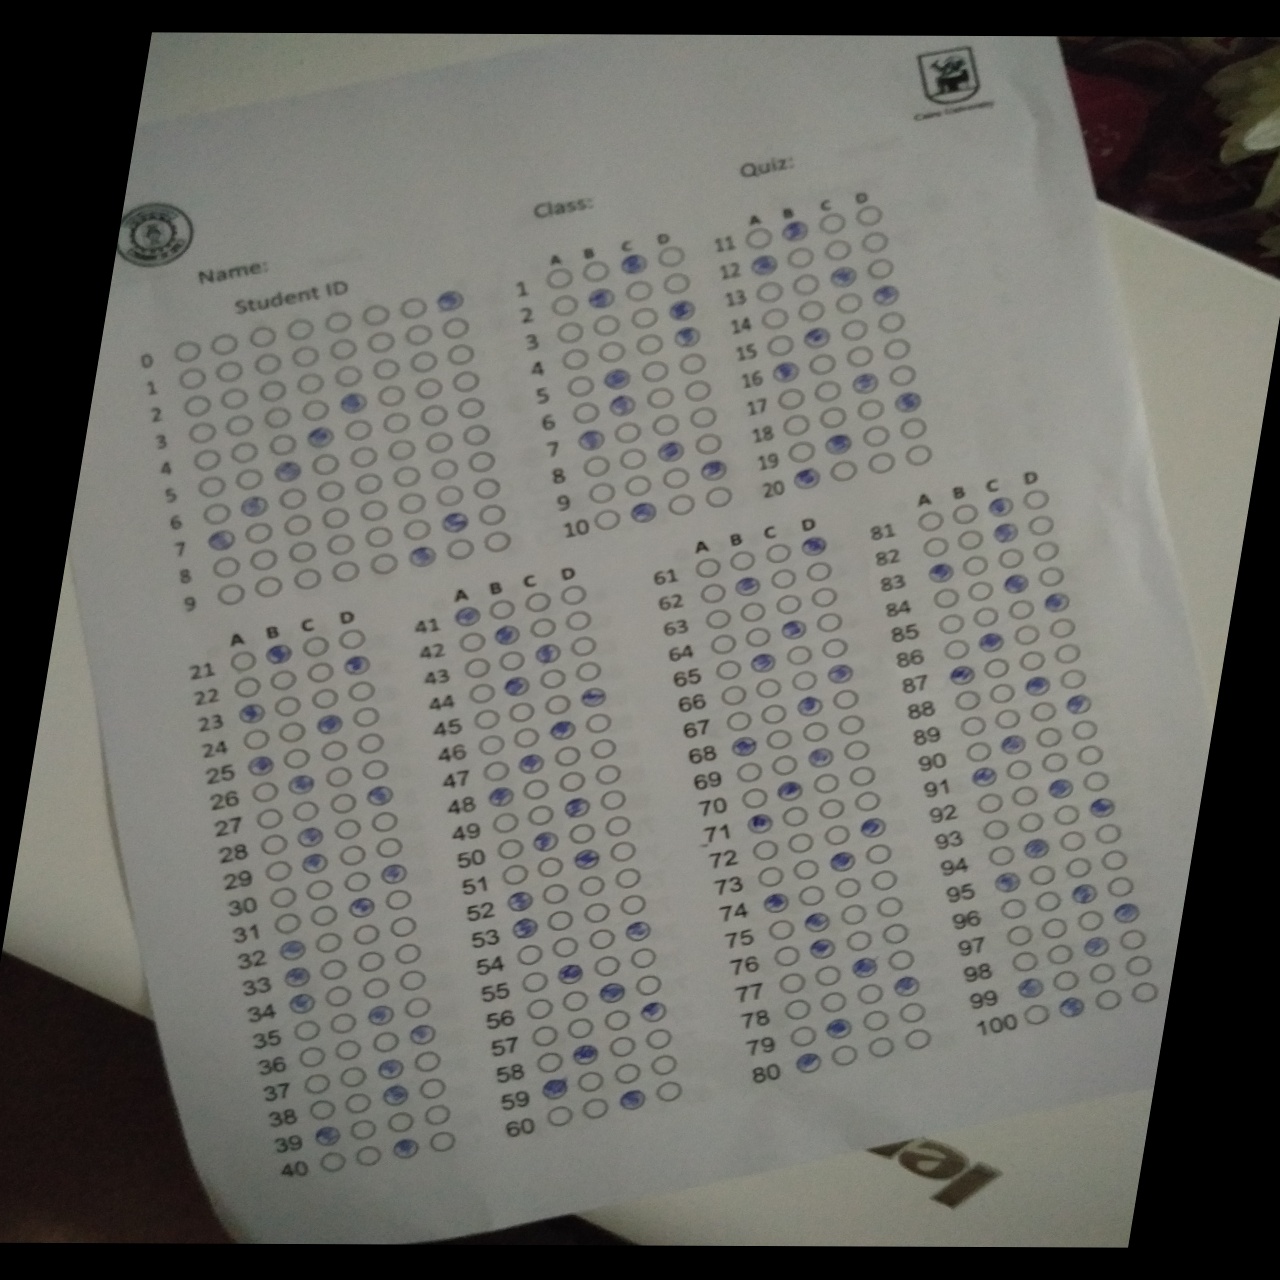 Cairo University
Quiz:
Class:
Name:
Student ID
0
1
2
3
4
5
6
7
8
9
A B C D
1
2
3
4
5
6
7
8
9
10
A B C D
11
12
13
14
15
16
17
18
19
20
A B C D
21
22
23
24
25
26
27
28
29
30
31
32
33
34
35
36
37
38
39
40
A B C D
41
42
43
44
45
46
47
48
49
50
51
52
53
54
55
56
57
58
59
60
A B C D
61
62
63
64
65
66
67
68
69
70
71
72
73
74
75
76
77
78
79
80
A B C D
81
82
83
84
85
86
87
88
89
90
91
92
93
94
95
96
97
98
99
100